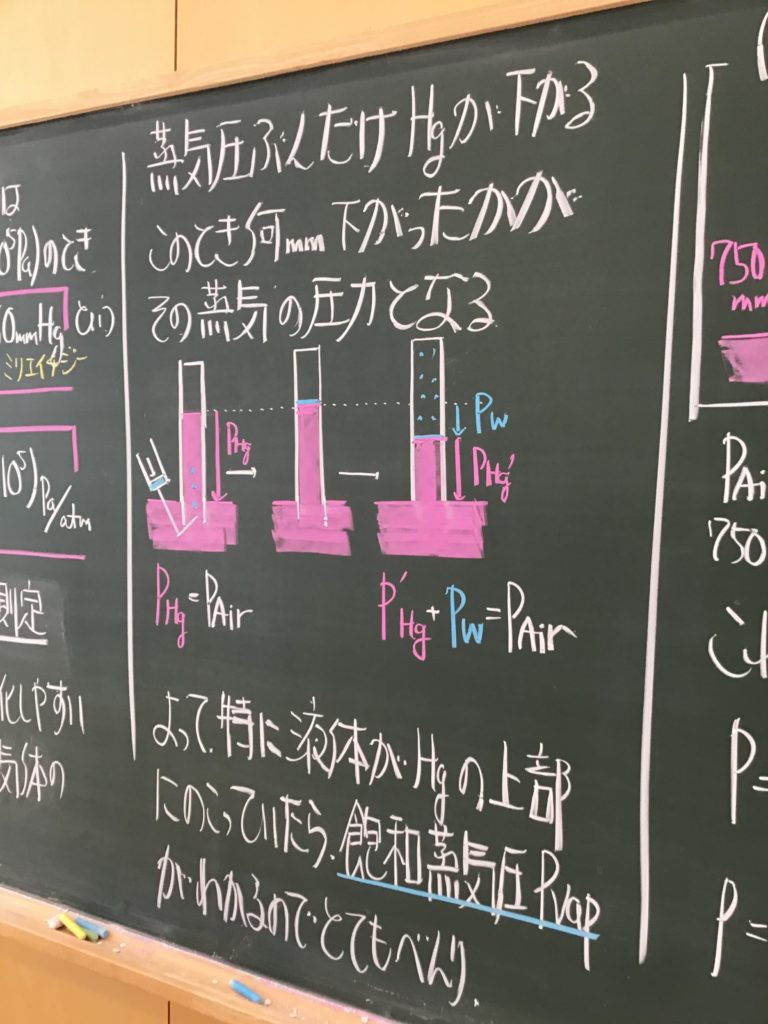 は
⁵Pa)のとき
0mmHgという
ミリエイチジー
10⁵)Pa/atm
測定
化しやすい
気体の
蒸気圧ぶんだけHgが下がる
このとき何mm下がったかが
その蒸気の圧力となる
PHg
Pw
PHg'
PHg=PAir
P'Hg+Pw=PAir
よって、特に液体がHgの上部
にのこっていたら、飽和蒸気圧Pvap
がわかるのでとてもべんり.
750
mm
PAi
750
これ
P=
P=